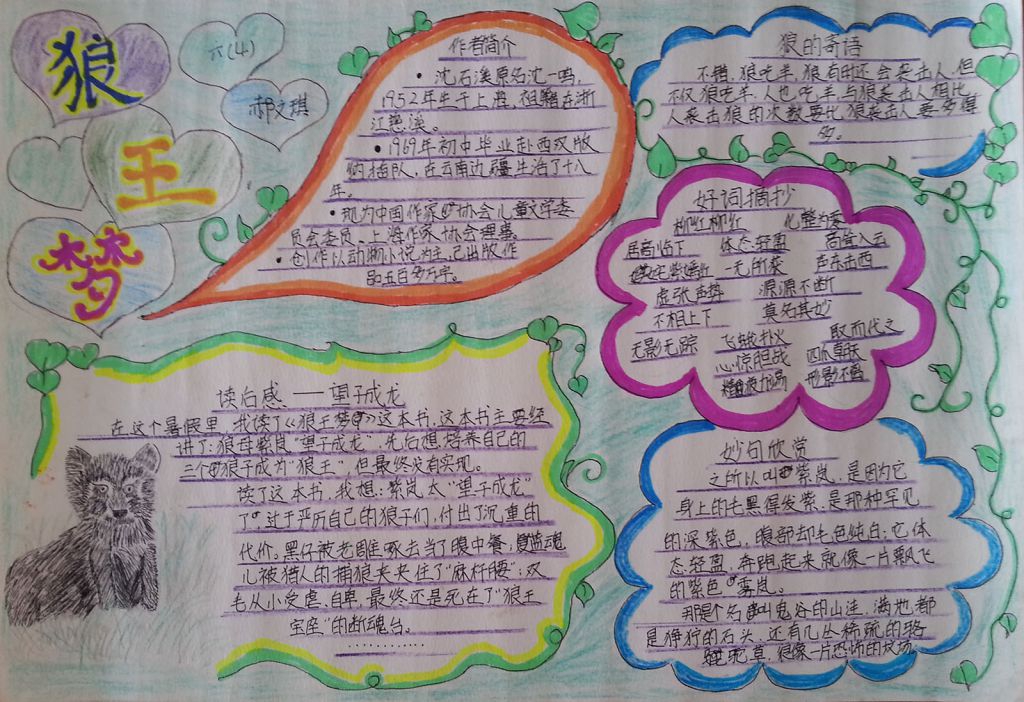 狼
王
梦
六(4)
郝文琪
作者简介
• 沈石溪原名沈一鸣,
1952年生于上海,祖籍在浙
江慈溪。
• 1969年初中毕业赴西双版
纳插队,在云南边疆生活了十八
年。
• 现为中国作家协会儿童文学委
员会委员、上海作家协会理事。
• 创作以动物小说为主,已出版作
品五百多万字。
狼的奇语
不错,狼吃羊,狼有时还会袭击人,但
不仅狼吃羊,人也吃羊与狼袭击人相比,
人袭击狼的次数要比狼袭击人要多得
多。
好词摘抄
柳红柳红 化整为零
居高临下 体态轻盈 高耸入云
一无所获 声东击西
虚张声势 源源不断
不相上下 莫名其妙
无影无踪 飞蛾扑火 取而代之
心惊胆战
形影不离
妙句欣赏
之所以叫紫岚,是因为它
身上的毛黑得发紫,是那种罕见
的深紫色,腹部却毛色纯白;它体
态轻盈,奔跑起来就像一片飘飞
的紫色雾岚。
那是个名叫鬼谷的山洼,满地都
是狰狞的石头,还有几丛稀疏的骆
驼草,很像一片恐怖的坟场。
读后感——望子成龙
在这个暑假里,我读了《狼王梦》这本书,这本书主要经
讲了:狼母紫岚“望子成龙”,先后想培养自己的
三个狼子成为“狼王”,但最终没有实现。
读了这本书,我想:紫岚太“望子成龙”
了,过于严厉自己的狼子们,付出了沉重的
代价。黑仔被老雕啄去当了腹中餐;蓝魂
儿被猎人的捕狼夹夹住了“麻杆腰”;双
毛从小受虐,自卑,最终还是死在了“狼王
宝座”的断魂台。
…………